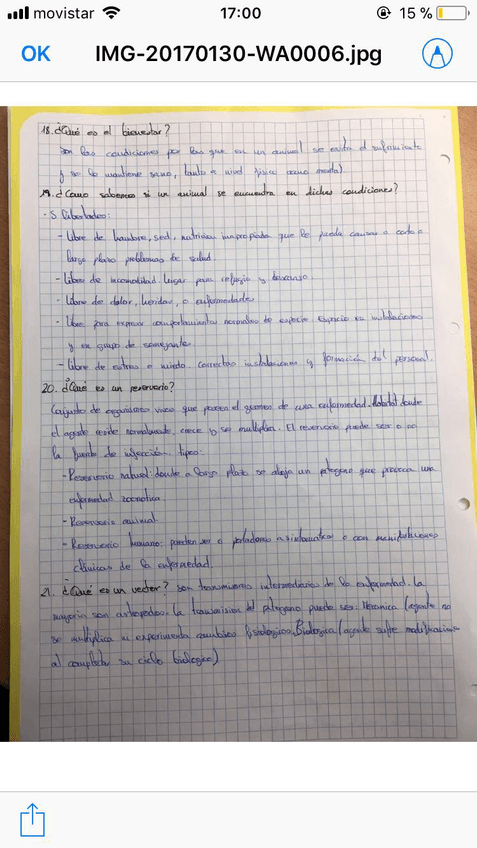 movistar 17:00 15 %
OK IMG-20170130-WA0006.jpg
18. ¿Qué es el bienestar?
Son las condiciones por las que en un animal se evita el sufrimiento
y se lo mantiene sano, tanto a nivel físico como mental
19. ¿Como sabemos si un animal se encuentra en dichas condiciones?
- 5 libertades:
- Libre de hambre, sed, nutrición inapropiada que le pueda causar a corto o
largo plazo problemas de salud.
- Libre de incomodidad lugar para refugio y descanso.
- Libre de dolor, heridas, o enfermedades
- Libre para expresar comportamientos normales de especie. Espacio en instalaciones
y en grupo de semejantes
- Libre de estres o miedo. Correctas instalaciones y formación del personal.
20. ¿Qué es un reservorio?
Conjunto de organismos vivos que poseen el germen de una enfermedad. Habitat donde
el agente reside normalmente, crece y se multiplica. El reservorio puede ser o no
la fuente de infección. tipos:
- Reservorio natural: donde a largo plazo se aloja un patogeno que provoca una
enfermedad zoonotica
- Reservorio animal
- Reservorio humano: pueden ser o portadores asintomaticos o con manifestaciones
clínicas de la enfermedad.
21. ¿Qué es un vector? Son transmisores intermediarios de la enfermedad. La
mayoria son artropodos. la transmision del patogeno puede ser: Mecanica (agente no
se multiplica ni experimenta cambios fisiologicos. Biologica (agente sufre modificaciones
al completar su ciclo biologico)